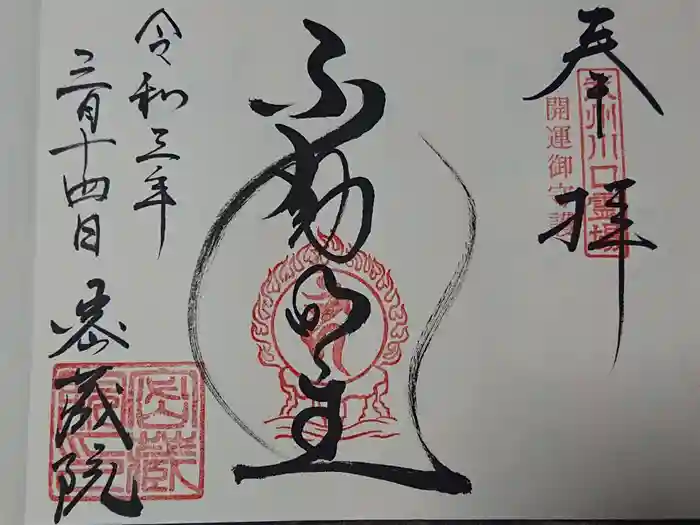 奉拝
武州川口霊場
開運御守護
不動明王
令和三年
三月十四日
密蔵院